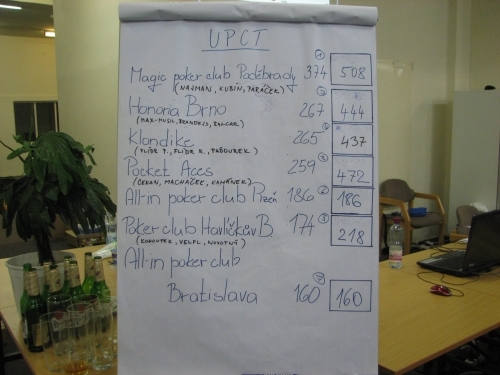 UPCT
Magic poker club Poděbrady 374 508
(NAJMAN, KUBÍN, PARÁČEK)
Honoria Brno 267 444
(MAX-MUSIL, BRANDEJS,
Klondike 265 437
(FLÍDR T., FLÍDR R., PAĎOUREK)
Pocket Aces 259 472
(ČEKAN, MACHÁČEK, KAHÁNEK)
All-in poker club Plzeň 186 186
Poker club Havlíčkův B. 174 218
(KOHOUTEK, VELFL, NOVOTNÝ)
All-in poker club
Bratislava 160 160